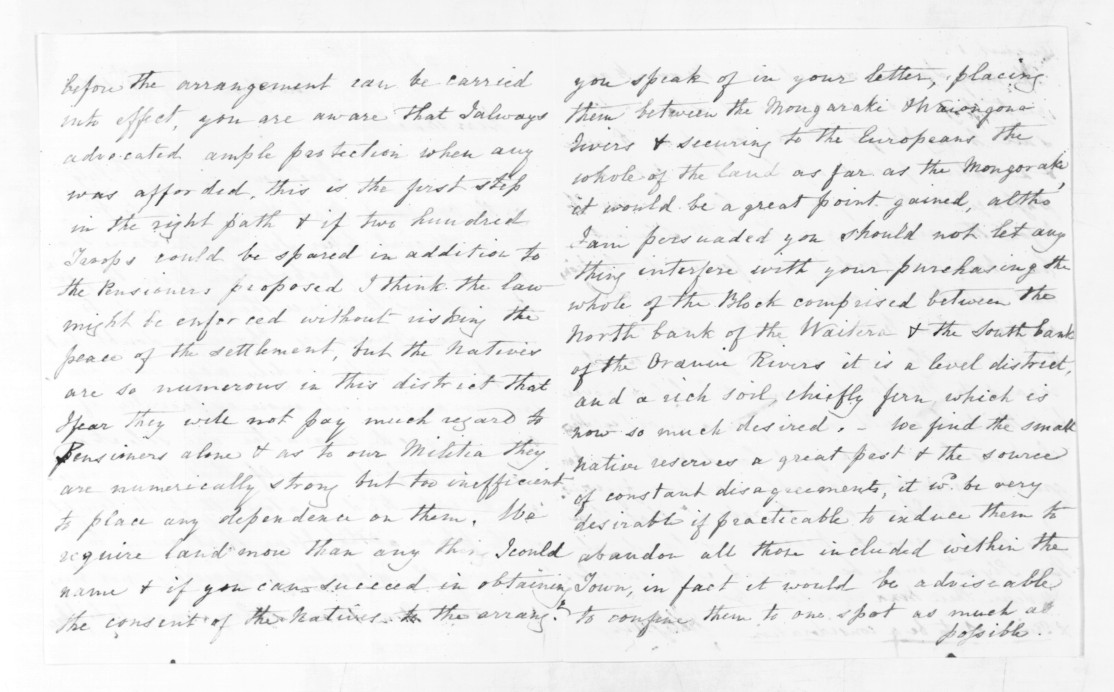 before the arrangement can be carried
into effect, you are aware that I always
advocated ample protection when any
was afforded, this is the first step
in the right path & if two hundred
Troops could be spared in addition to
the Pensioners proposed I think the law
might be enforced without risking the
peace of the settlement, but the Natives
are so numerous in this district that
I fear they will not pay much regard to
Pensioners alone & as to our Militia they
are numerically strong but too inefficient
to place any dependence on them. We
require land more than any thing I could
name & if you can succeed in obtaining
the consent of the Natives to the arrangt.
you speak of in your letter, placing
them between the Mongaraki &
Rivers & securing to the Europeans the
whole of the land as far as the Mongoraki
it would be a great point gained, altho'
I am persuaded you should not let any
thing interfere with your purchasing the
whole of the Block comprised between the
North bank of the Waitera & the South bank
of the Rivers it is a level district,
and a rich soil, chiefly fern which is
now so much desired. - We find the small
native reserves a great pest & the source
of constant disagreements, it wd. be very
desirable if practicable to induce them to
abandon all those included within the
Town, in fact it would be adviseable
to confine them to one spot as much as
possible.